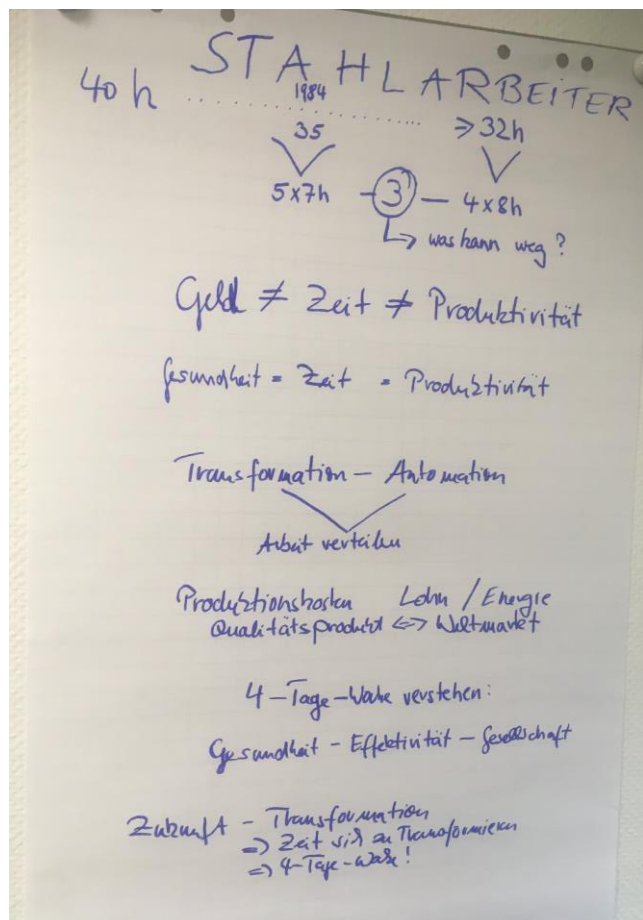 STAHLARBEITER
40h 1984
35 => 32h
5x7h - 3 - 4x8h
↳ was kann weg?
Geld ≠ Zeit ≠ Produktivität
Gesundheit = Zeit = Produktivität
Transformation - Automation
Arbeit verteilen
Produktionskosten Lohn / Energie
Qualitätsprodukt <=> Weltmarkt
4-Tage-Woche verstehen:
Gesundheit - Effektivität - Gesellschaft
Zukunft - Transformation
=> Zeit sich zu Transformieren
=> 4-Tage-Woche!